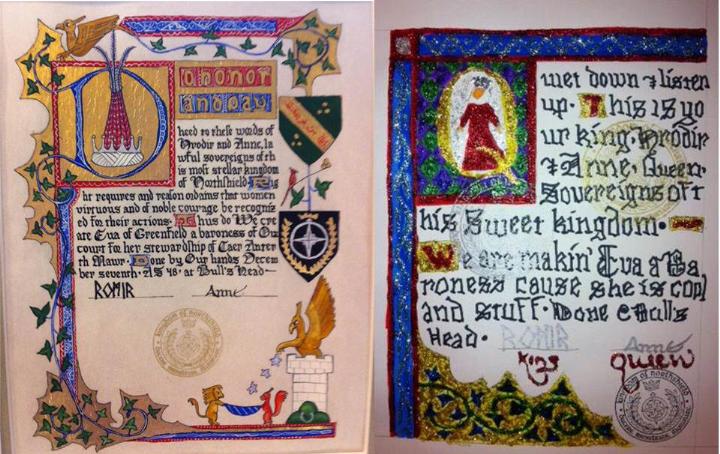 Do honor
and pay
heed to these words of
Hrodir and Anne, la
wful sovereigns of th
is most stellar kingdom
of Northshield. Rig
ht requires and reason ordains that women
virtuous and of noble courage be recogniz
ed for their actions. Thus do We cre
ate Eva of Greenfield a baroness of Our
court for her stewardship of Caer Anter
th Mawr. Done by Our hands Decem
ber seventh. AS 48. at Bull's Head
Anne
Quiet down & listen
up. This is yo
ur king. Hrodir
& Anne. Queen.
Sovereigns of t
his Sweet kingdom.
We are makin Eva a Ba
roness cause she is cool
and stuff. Done @ Bull's
Head.
Anne
King
queen
kingdom of northshield